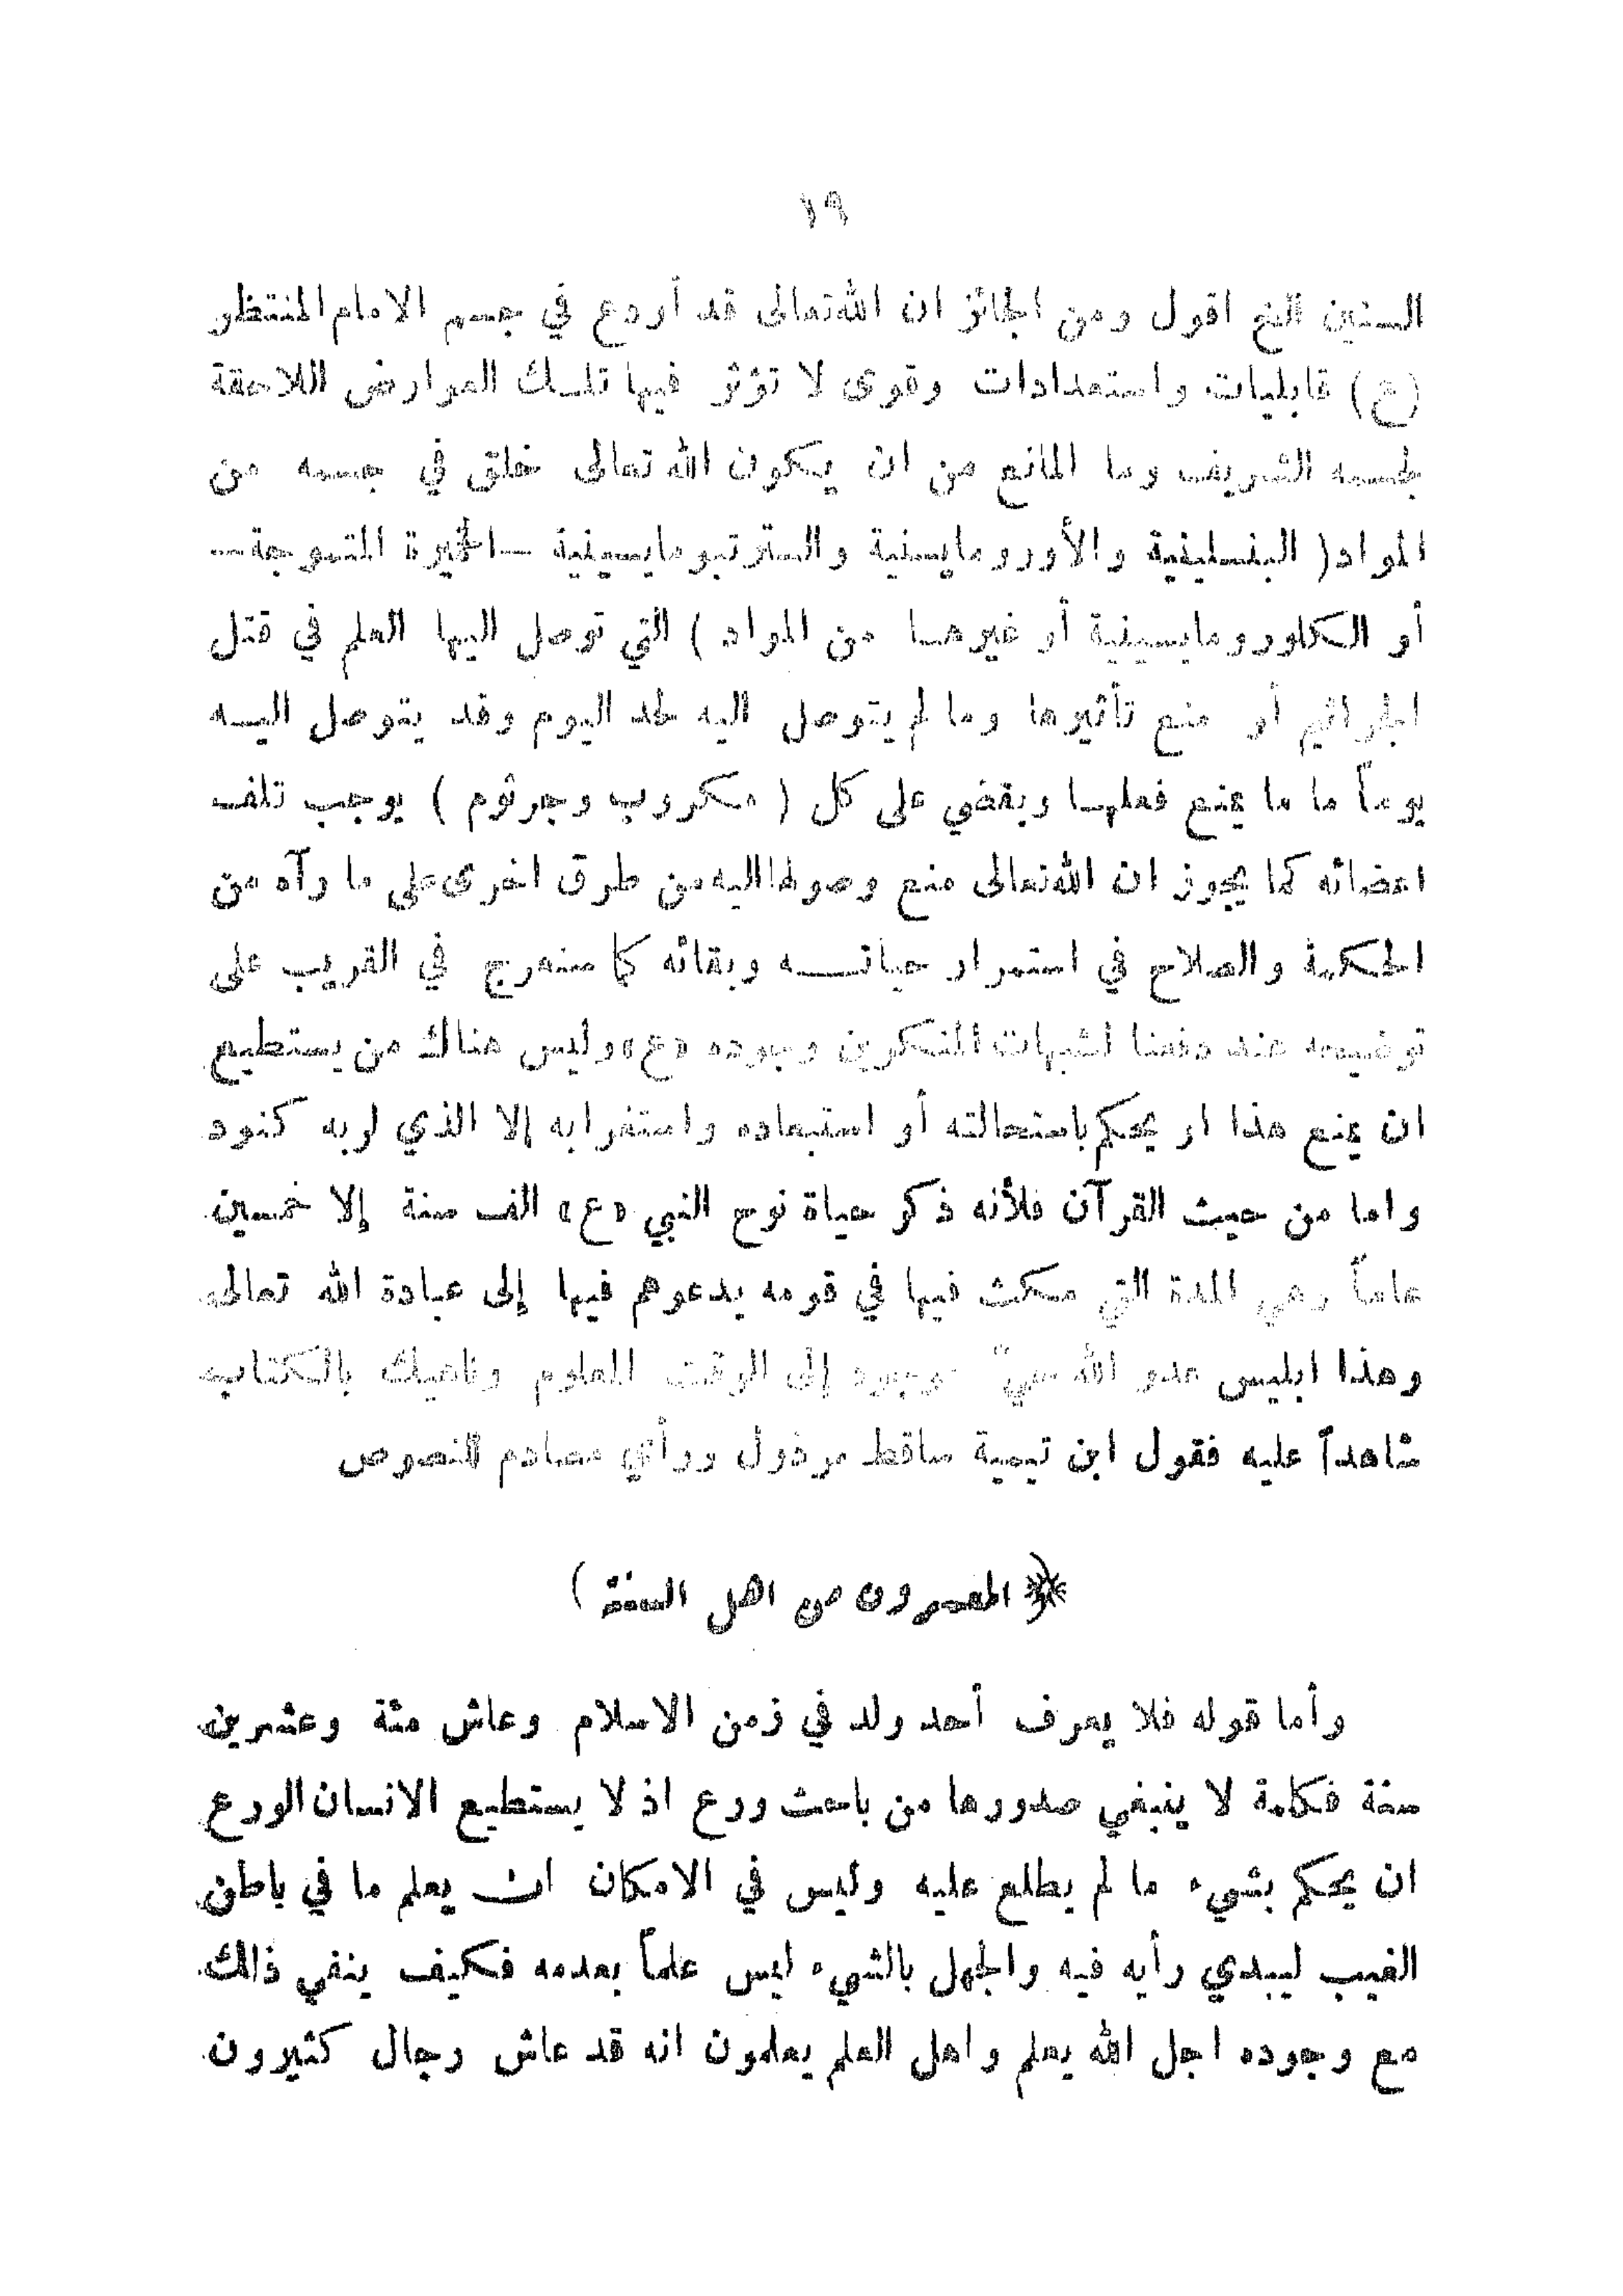 ١٩
السنين الخ اقول ومن الجائز ان الله تعالى قد أودع في جسم الامام المنتظر
(ع) قابليات واستعدادات وقوى لا تؤثر فيها تلك العوارض اللاحقة
لجسمه الشريف وما المانع من ان يكون الله تعالى خلق في جسمه من
المواد ( البنسلينية والأورومايسنية والسترتبومايسينية -الخميرة المتموجة-
أو الكلورومايسينية أو غيرها من المواد ) التي توصل اليها العلم في قتل
الجراثيم أو منع تأثيرها وما لم يتوصل اليه لحد اليوم وقد يتوصل اليه
يوماً ما ما يمنع فعلها ويقضي على كل ( مكروب وجرثوم ) يوجب تلف
اعضائه كما يجوز ان الله تعالى منع وصولها اليه من طرق اخرى على ما رآه من
الحكمة والصلاح في استمرار حياته وبقائه كما سنعرج في القريب على
توضيحه عند دفعنا لشبهات المنكرين وجوده «ع» وليس هناك من يستطيع
ان يمنع هذا او يحكم باستحالته أو استبعاده واستغرابه إلا الذي لربه كنود
واما من حيث القرآن فلأنه ذكر حياة نوح النبي «ع» الف سنة إلا خمسين
عاماً وهي المدة التي مكث فيها في قومه يدعوهم فيها إلى عبادة الله تعالى
وهذا ابليس عدو الله حيّ موجود إلى الوقت المعلوم وناهيك بالكتاب
شاهداً عليه فقول ابن تيمية ساقط مرذول ورأي مصادم للنصوص
( المعمرون من اهل السنة )
وأما قوله فلا يعرف أحد ولد في زمن الاسلام وعاش مئة وعشرين
سنة فكلمة لا ينبغي صدورها من باحث ورع اذ لا يستطيع الانسان الورع
ان يحكم بشيء ما لم يطلع عليه وليس في الامكان ان يعلم ما في باطن
الغيب ليبدي رأيه فيه والجهل بالشيء ليس علماً بعدمه فكيف ينفي ذلك
مع وجوده اجل الله يعلم واهل العلم يعلمون انه قد عاش رجال كثيرون